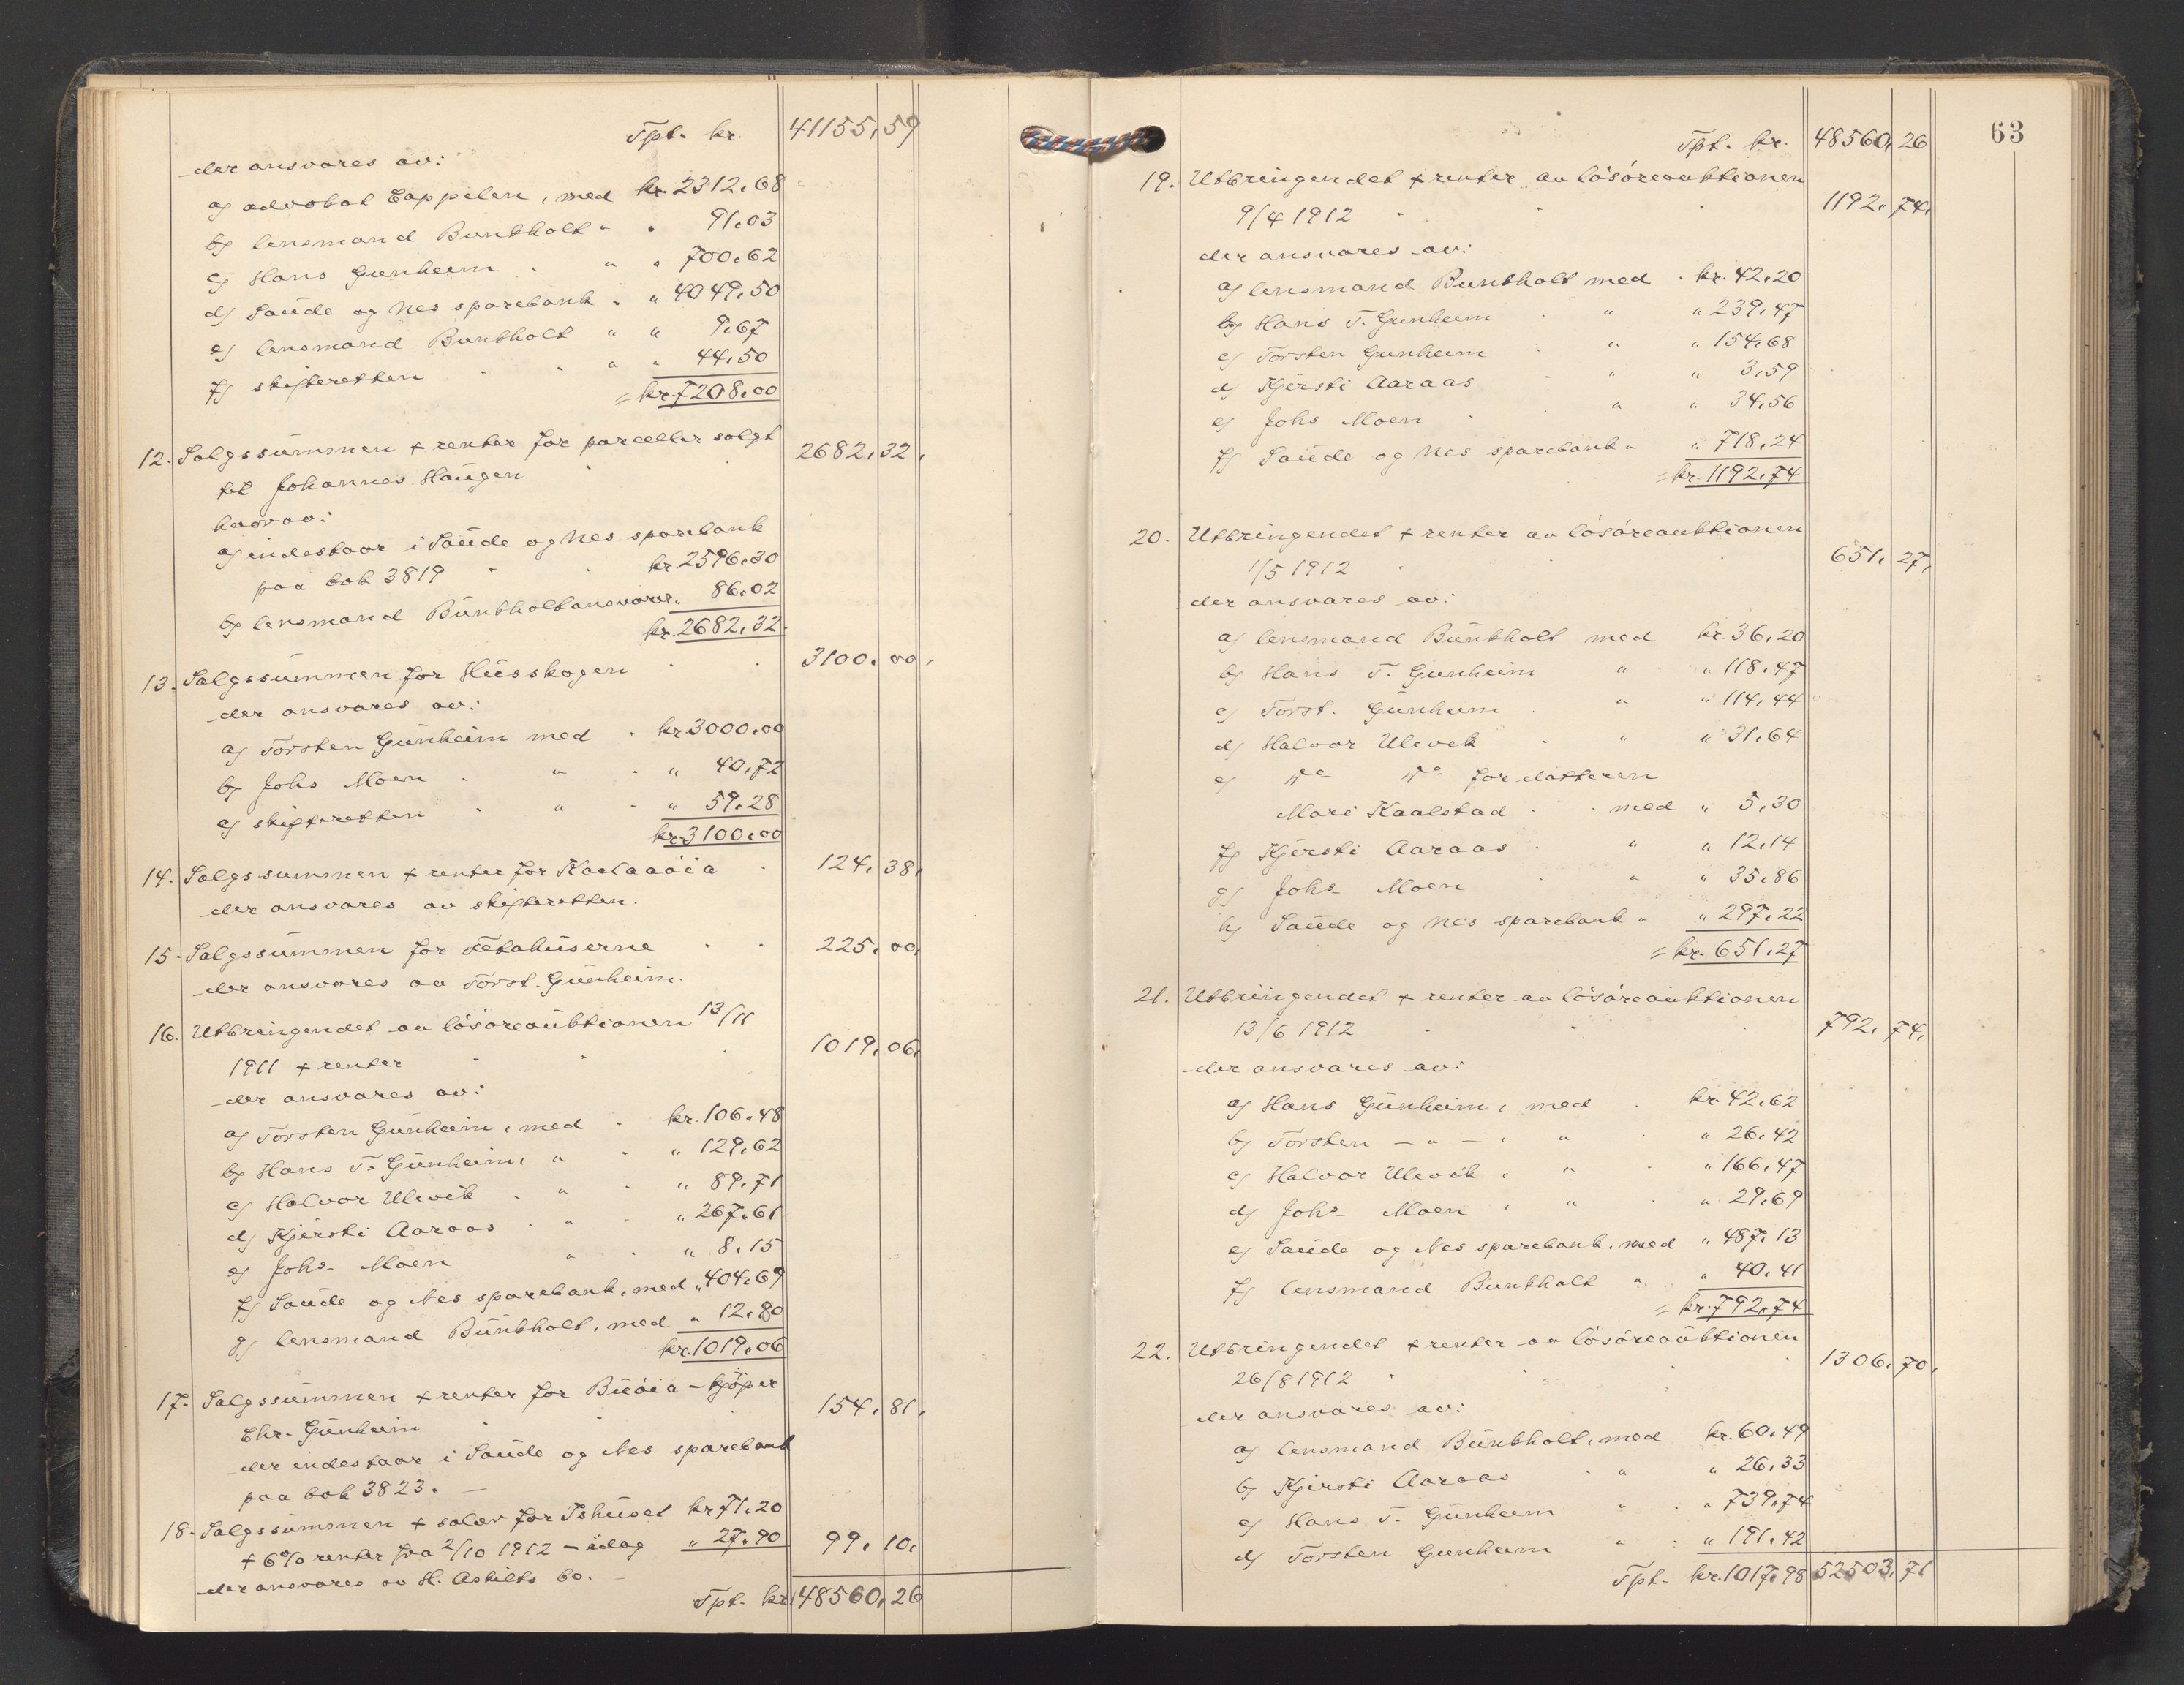 Tpt. kr. 41155,59
der ansvares av:
a) advokat Cappelen, med kr. 2312,68
b) lensmand Bunkholt " " 91,03
c) Hans Gunheim . " " 700,62
d) Saude og Nes sparebank " " 4049,50
e) lensmand Bunkholt " " 9,67
f) skifteretten . . " " 44,50
= kr. 7208,00
12. Salgssummen + renter for parceller solgt
til Johannes Haugen . . 2682,32,
hvorav:
a) indestaar i Saude og Nes sparebank
paa bok 3819 . . kr. 2596,30
b) lensmand Bunkholt ansvarer " 86,02
kr. 2682,32.
13. Salgssummen for Husskogen . . 3100,00,
der ansvares av:
a) Torsten Gunheim med . kr. 3000,00
b) Johs Moen . " . " 40,72
c) skifteretten . " . " 59,28
kr. 3100,00
14. Salgssummen + renter for Kaslaaöia . 124,38,
der ansvares av skifteretten.
15. Salgssummen for Tetahuserne . . 225,00,
der ansvares av Torst. Gunheim.
16. Utbringendet av lösöreauktionen 13/11
1911 + renter . . . 1019,06,
der ansvares av:
a) Torsten Gunheim, med . kr. 106,48
b) Hans T. Gunheim, " . " 129,62
c) Halvor Ulevik . " . " 89,71
d) Kjersti Aaraas . " . " 267,61
e) Johs. Moen " . " 8,15
f) Saude og Nes sparebank, med " 404,69
g) lensmand Bunkholt, med " 12,80
kr. 1019,06
17. Salgssummen + renter for Buöia – kjöper
Chr. Gunheim . . . 154,81,
der indestaar i Saude og Nes sparebank
paa bok 3823. –
18. Salgssummen + salær for Ishuset kr 71,20
+ 6% renter fra 2/10 1912 – idag " 27,90 99,10,
der ansvares av H. Askilts bo. –
Tpt. kr. 48560,26
63
Tpt. kr. 48560,26
19. Utbringendet + renter av lösöreauktionen
9/4 1912 . . . 1192,74,
der ansvares av:
a) lensmand Bunkholt med . kr. 42,20
b) Hans T. Gunheim . " " 239,47
c) Torsten Gunheim . " " 154,68
d) Kjersti Aaraas . " " 3,59
e) Johs Moen . . " " 34,56
f) Saude og Nes sparebank " " 718,24
= kr. 1192,74
20. Utbringendet + renter av lösöreauktionen
1/5 1912 . . . 651,27,
der ansvares av:
a) lensmand Bunkholt med kr. 36,20
b) Hans T. Gunheim " " 118,47
c) Torst. Gunheim . " " 114,44
d) Halvor Ulevik . " " 31,64
e) do do for datteren
Mari Kaalstad . . med " 5,30
f) Kjersti Aaraas . " " 12,14
g) Johs. Moen . " " 35,86
h) Saude og Nes sparebank " " 297,22
= kr. 651,27
21. Utbringendet + renter av lösöreauktionen
13/6 1912 . . . 792,74,
der ansvares av:
a) Hans Gunheim, med . kr. 42,62
b) Torsten – " – , " . " 26,42
c) Halvor Ulevik , " . " 166,47
d) Johs. Moen , " . " 29,69
e) Saude og Nes sparebank, med " 487,13
f) lensmand Bunkholt " . " 40,41
= kr. 792,74
22. Utbringendet + renter av lösöreauktionen
26/8 1912 . . . 1306,70,
der ansvares av:
a) lensmand Bunkholt, med kr. 60,49
b) Kjersti Aaraas . " " 26,33
c) Hans T. Gunheim " . " 739,74
d) Torsten Gunheim " . " 191,42
Tpt. kr. 1017,98 52503,71